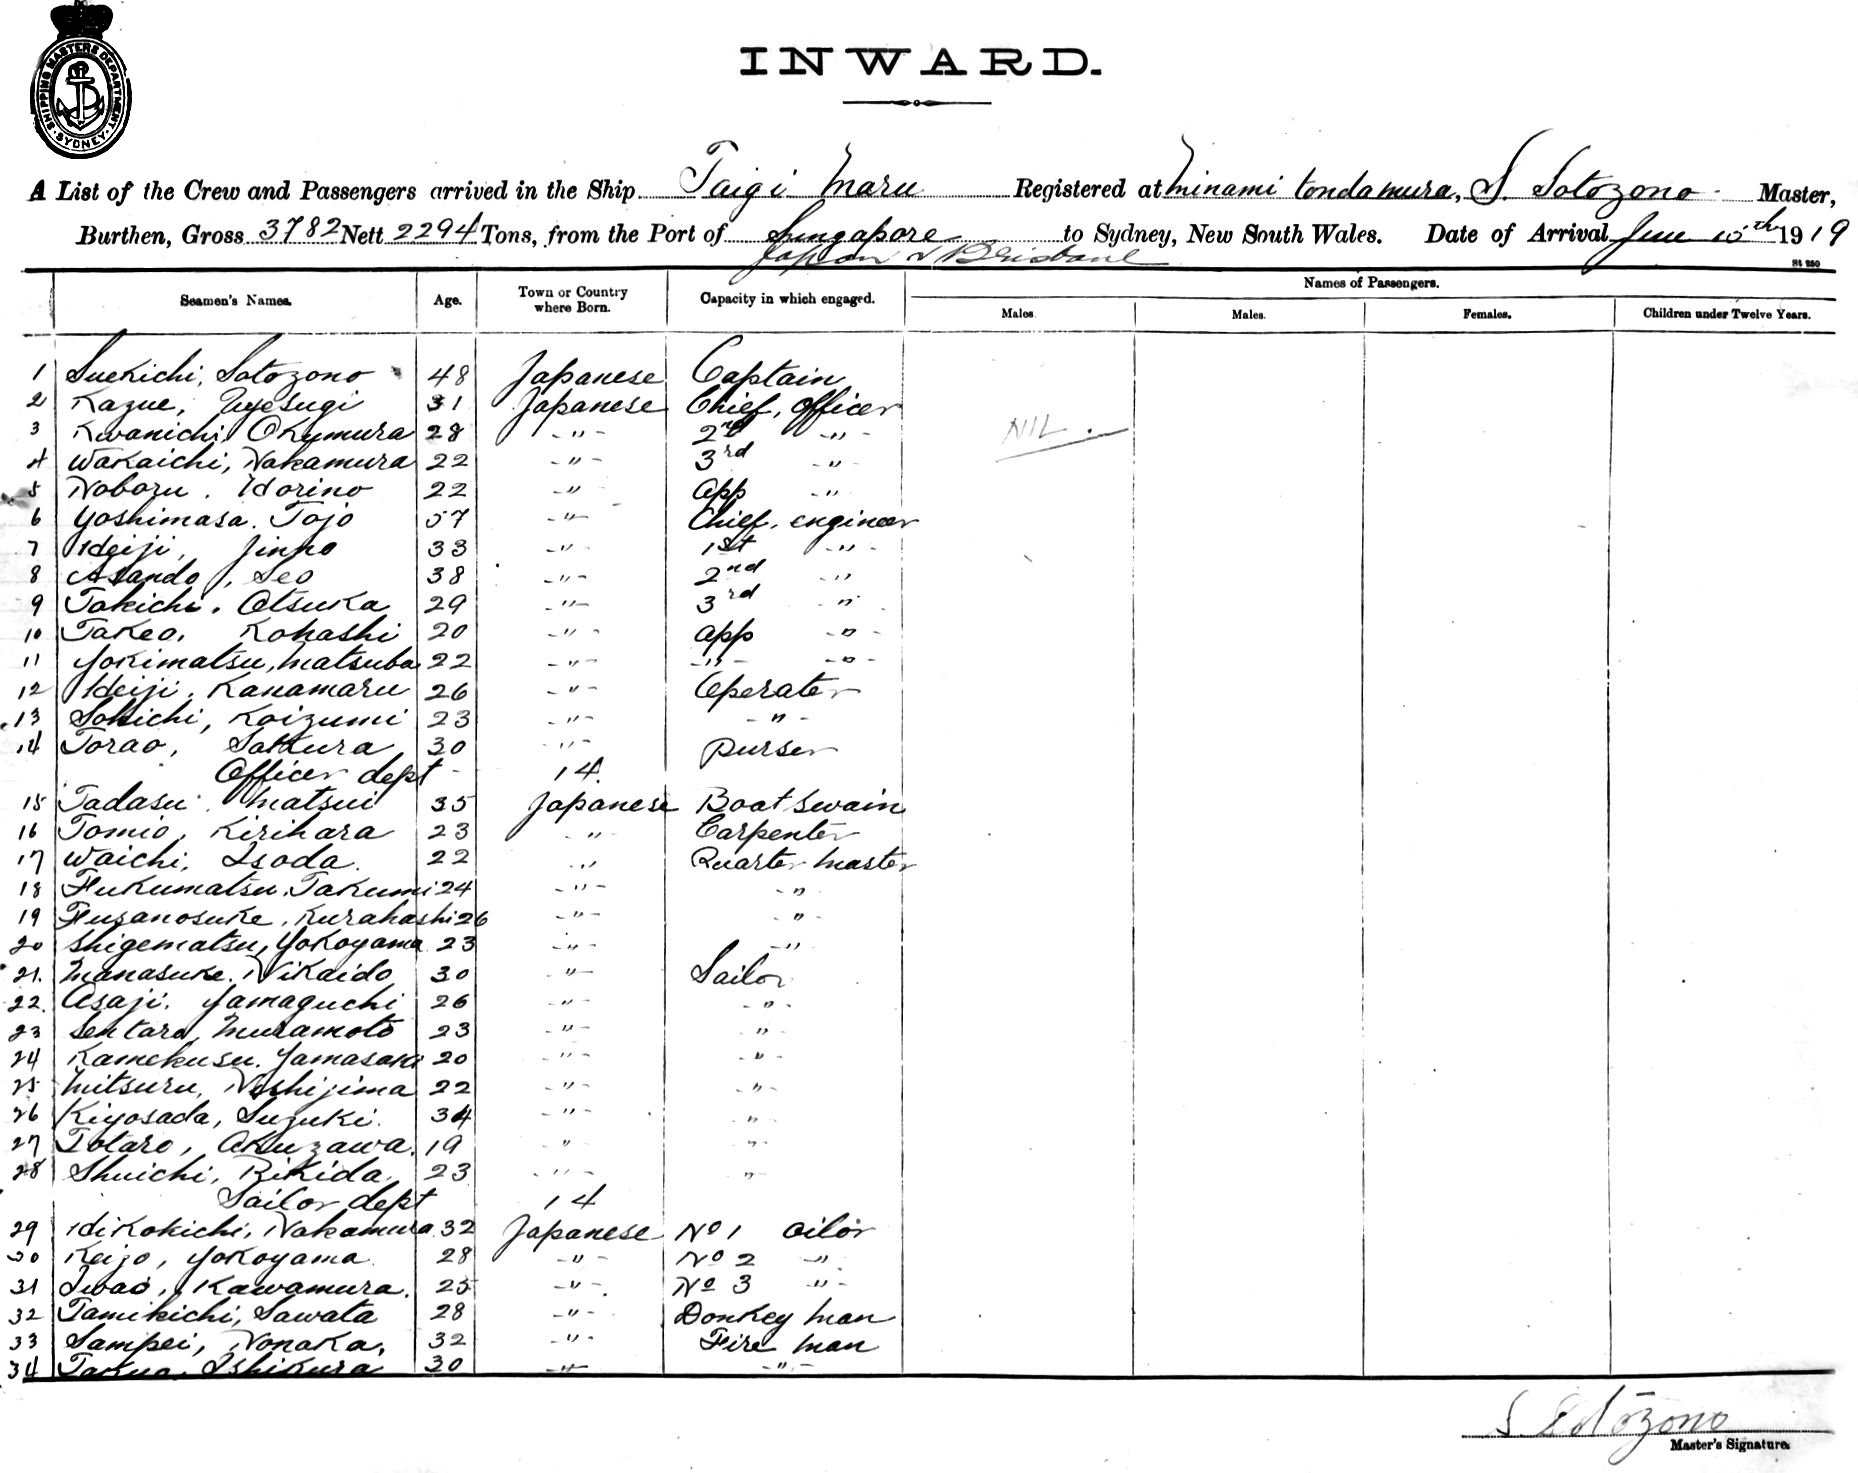 SHIPPING MASTERS DEPARTMENT
SYDNEY
INWARD.
A List of the Crew and Passengers arrived in the Ship Taigi Maru Registered at Minami tondamura, S. Sotozono Master,
Burthen, Gross 3782 Nett 2294 Tons, from the Port of Singapore to Sydney, New South Wales. Date of Arrival June 15th 1919
Japan & Brisbane
St 250
Seamen's Names. Age. Town or Country where Born. Capacity in which engaged. Names of Passengers.
Males Males. Females. Children under Twelve Years.
1 Suekichi, Sotozono 48 Japanese Captain
2 Kazue, Uyesugi 31 Japanese Chief, officer
3 Kwanichi, Okumura 28 -"- 2nd -"-
NIL.
4 Wakaichi, Nakamura 22 -"- 3rd -"-
5 Noboru. Horino 22 -"- app -"-
6 Yoshimasa. Tojo 57 -"- Chief, engineer
7 Heiji, Jinno 33 -"- 1st -"-
8 Asando, Seo 38 -"- 2nd -"-
9 Tokichi, Otsuka 29 -"- 3rd -"-
10 Takeo, Kohashi 20 -"- app -"-
11 Yokimatsu, Matsuba 22 -"- -"- -"-
12 Heiji, Kanamaru 26 -"- Operater
13 Sokichi, Koizumi 23 -"- -"-
14 Torao, Sakura 30 -"- purser
Officer dept 14.
15 Tadasu. Matsui 35 Japanese Boat swain
16 Tomio, Kirihara 23 -"- Carpenter
17 Waichi, Isoda. 22 -"- Quarter Master
18 Fukumatsu, Takumi 24 -"- -"-
19 Fusanosuke, Kurahashi 26 -"- -"-
20 Shigematsu, Yokoyama 23 -"- -"-
21. Manasuke. Nikaido 30 -"- Sailor
22. Asaji. Yamaguchi 26 -"- -"-
23 Sentaro, Muramoto 23 -"- "
24 Kamekusu. Yamasaki 20 -"- -"-
25 Mitsuru, Nishijima 22 -"- -"-
26 Kiyosada, Suzuki. 34 -"- "
27 Totaro, Akuzawa. 19 " "
28 Shuichi, Rikida. 23 -"- "
Sailor dept 14
29 Hikokichi, Nakamura 32 Japanese No 1 oilor
30 Keizo, Yokoyama 28 -"- No 2 -"-
31 Iwao, Kawamura. 25 -"- No 3 -"-
32 Tamikichi, Sawata 28 -"- Donkey man
33 Sampei, Nonaka, 32 -"- Fire man
34 Takuo, Ishikura 30 -"- -"-
S Sotozono
Master's Signature